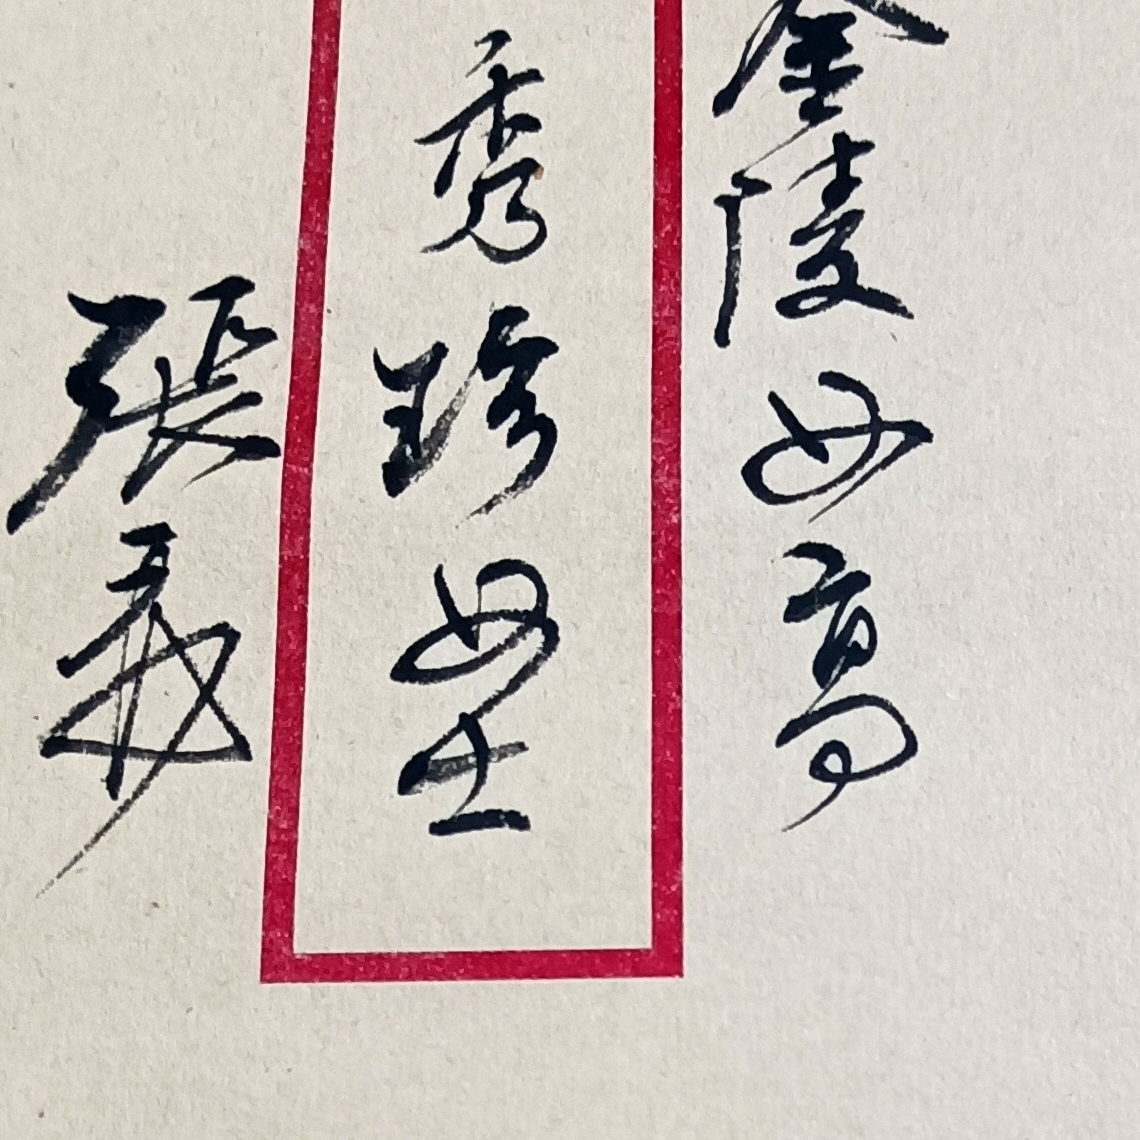 金陵女高
秀珍女士
張